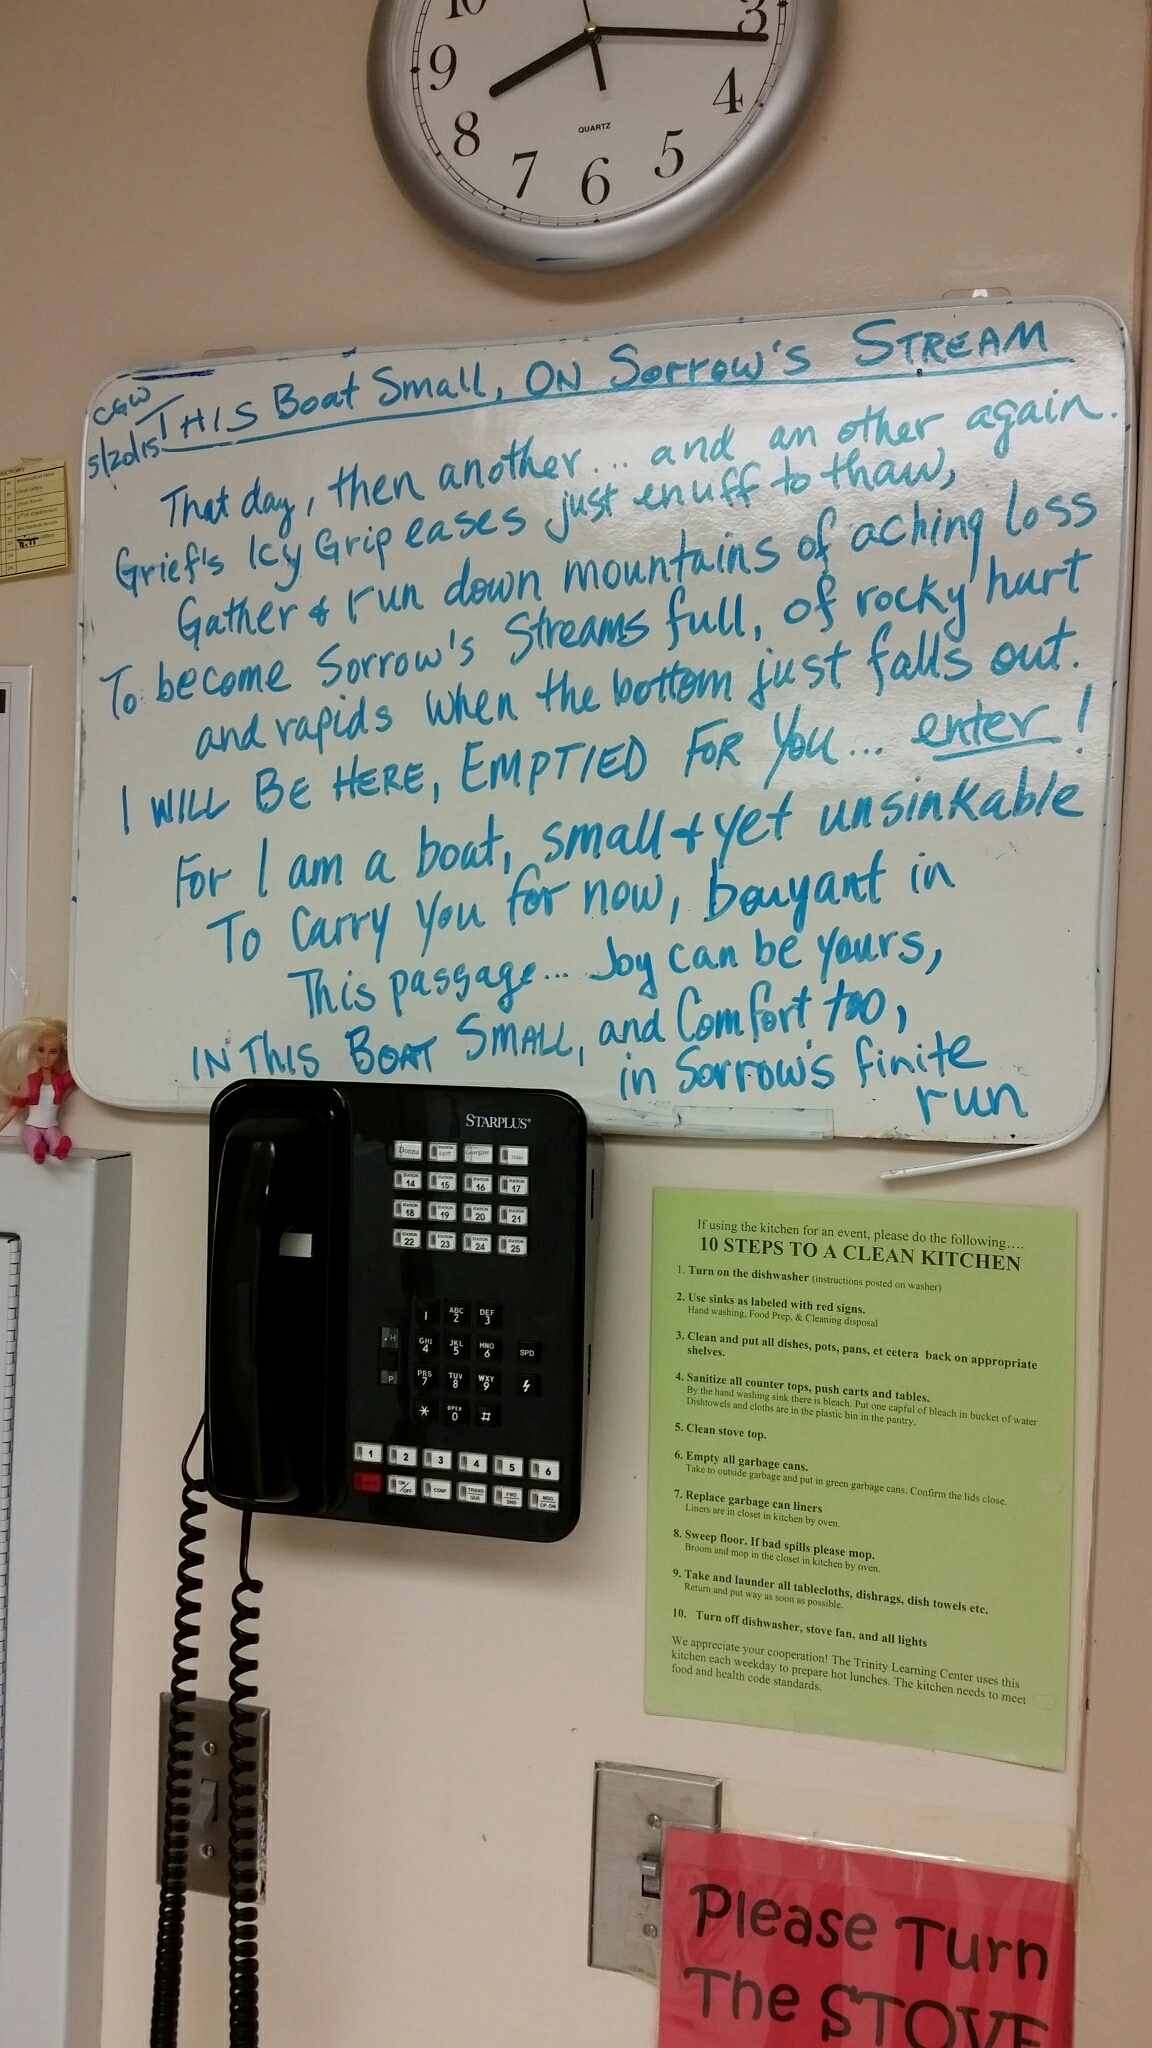 10
9
8
7
6
5
4
3
QUARTZ
CGW
5/2015
THIS Boat Small, ON Sorrow's STREAM
That day, then another... and an other again.
Grief's Icy Grip eases just enuff to thaw,
Gather & run down mountains of aching loss
To become Sorrow's Streams full, of rocky hurt
and rapids when the bottom just falls out.
I WILL BE HERE, EMPTIED FOR YOU... enter!
For I am a boat, small & yet unsinkable
To Carry you for now, bouyant in
This passage... Joy can be yours,
IN THIS BOAT SMALL, and Comfort too,
in Sorrow's finite
run
STARPLUS
Donna Georgine
STATION 14 STATION 15 STATION 16 STATION 17
STATION 18 STATION 19 STATION 20 STATION 21
STATION 22 STATION 23 STATION 24 STATION 25
1 ABC 2 DEF 3
GHI 4 JKL 5 MNO 6 SPD
PRS 7 TUV 8 WXY 9
* OPER 0 #
H
P
1 2 3 4 5 6
ON/OFF CONF TRANS QUE FWD DND MSG CP ON
If using the kitchen for an event, please do the following....
10 STEPS TO A CLEAN KITCHEN
1. Turn on the dishwasher (instructions posted on washer)
2. Use sinks as labeled with red signs.
Hand washing, Food Prep, & Cleaning disposal
3. Clean and put all dishes, pots, pans, et cetera back on appropriate
shelves.
4. Sanitize all counter tops, push carts and tables.
By the hand washing sink there is bleach. Put one capful of bleach in bucket of water
Dishtowels and cloths are in the plastic bin in the pantry.
5. Clean stove top.
6. Empty all garbage cans.
Take to outside garbage and put in green garbage cans. Confirm the lids close.
7. Replace garbage can liners
Liners are in closet in kitchen by oven.
8. Sweep floor. If bad spills please mop.
Broom and mop in the closet in kitchen by oven.
9. Take and launder all tablecloths, dishrags, dish towels etc.
Return and put way as soon as possible.
10. Turn off dishwasher, stove fan, and all lights
We appreciate your cooperation! The Trinity Learning Center uses this
kitchen each weekday to prepare hot lunches. The kitchen needs to meet
food and health code standards.
Please Turn
The STOVE